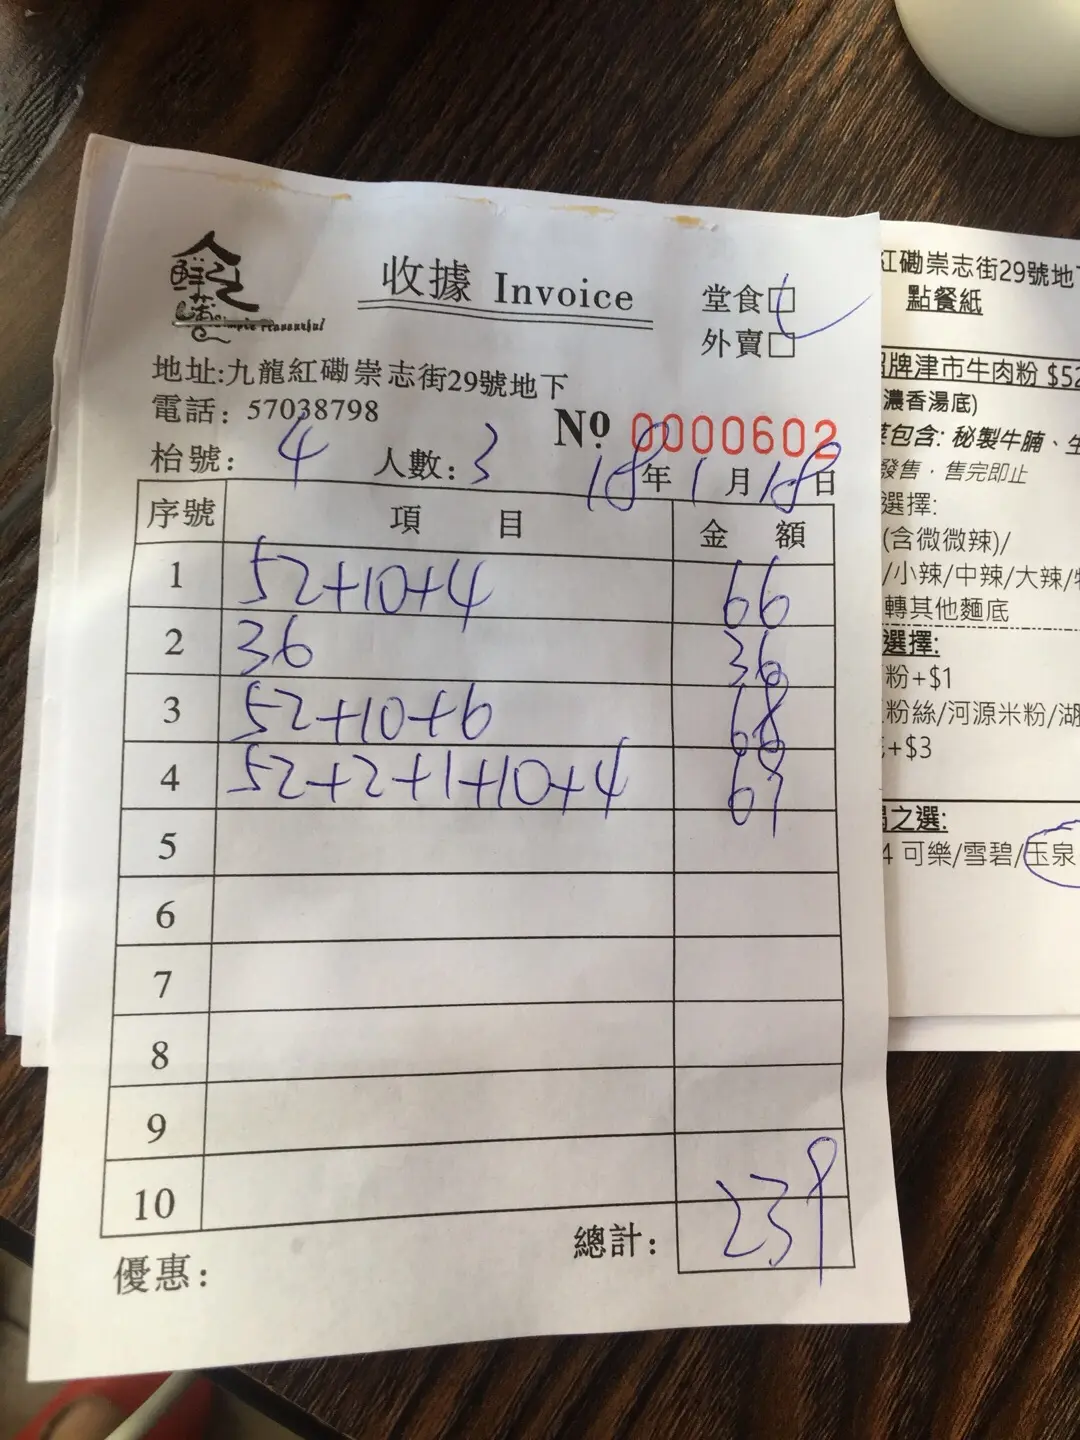 收據 Invoice
堂食
外賣
地址:九龍紅磡崇志街29號地下
電話: 57038798
Nº 0000602
枱號: 4 人數: 3 18年 1月 18日
序號 項目 金額
1 52+10+4 66
2 36 36
3 52+10+6 68
4 52+2+1+10+4 69
5
6
7
8
9
10
總計: 239
優惠:
紅磡崇志街29號地
點餐紙
牌津市牛肉粉 $52
濃香湯底)
包含: 秘製牛腩、
發售，售完即止
選擇:
(含微微辣)/
/小辣/中辣/大辣/
轉其他麵底
選擇:
粉+$1
粉絲/河源米粉/
+$3
之選:
4 可樂/雪碧/玉泉